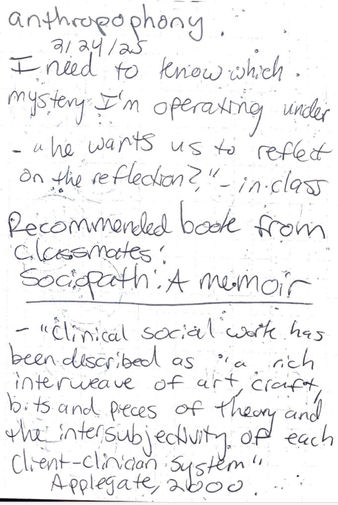 anthropophony.
3/24/25
I need to know which.
mystery I'm operating under
- "he wants us to reflect
on the reflection?," - in class
Recommended book from
classmates:
Sociopath: A memoir
- "Clinical social work has
been described as "a rich
interweave of art, craft,
bits and pieces of theory and
the intersubjectivity of each
Client-clinician system"
Applegate, 2000.